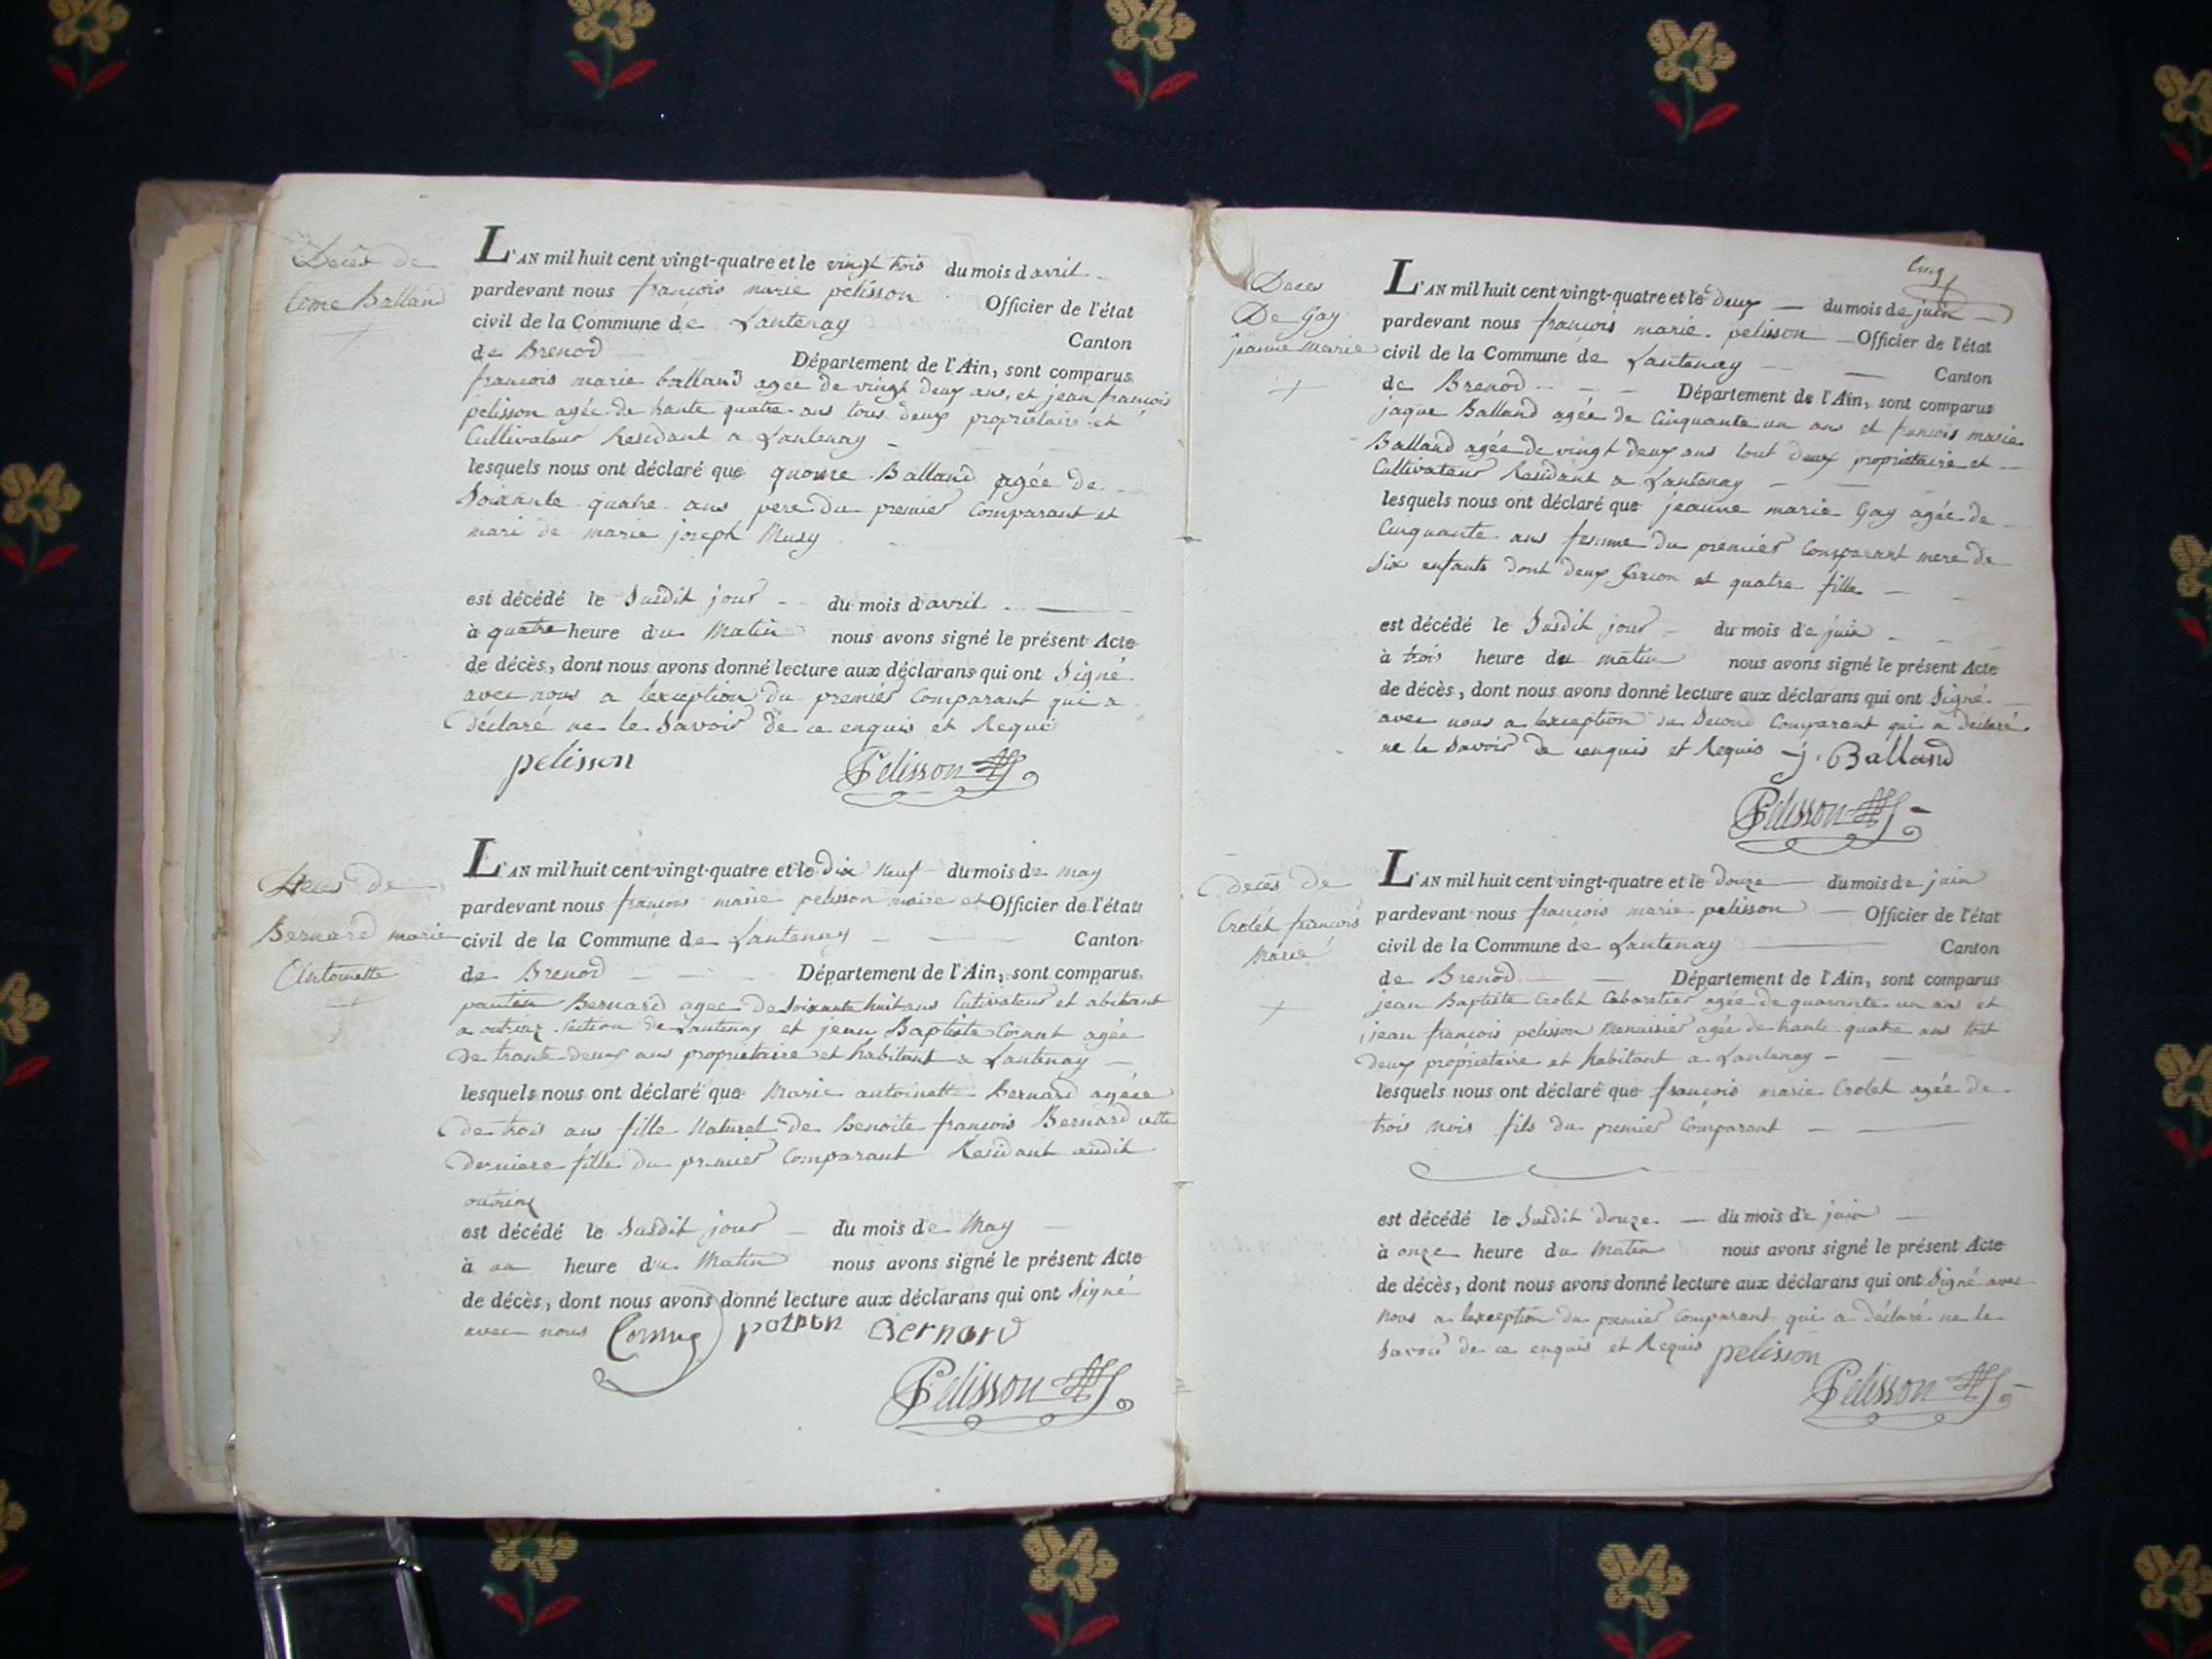 Décès de
Come Balland
L'AN mil huit cent vingt-quatre et le vingt trois du mois d'avril
pardevant nous françois marie pelisson Officier de l'état
civil de la Commune de Lantenay Canton
de Brenod Département de l'Ain, sont comparus
francois marie balland agee de vingt deux ans, et jean françois
pelisson agée de trante quatre ans tous deux propriétaire et
Cultivateur Residant a Lantenay
lesquels nous ont déclaré que Balland agée de
Soixante quatre ans pere du premier Comparant et
mari de marie joseph Musy
est décédé le Susdit jour du mois d'avril
à quatre heure du Matin nous avons signé le présent Acte
de décès, dont nous avons donné lecture aux déclarans qui ont Signé
avec nous a lexception du premier Comparant qui a
Déclaré ne le Savoir de ce enquis et Requi
pelisson Pelisson
Deces de
Bernard marie
Antoinette
L'AN mil huit cent vingt-quatre et le Dix neuf du mois de may
pardevant nous françois marie pelisson maire et Officier de l'état
civil de la Commune de Lantenay Canton
de Brenod Département de l'Ain, sont comparus
Bernard agee de Soixante huit ans Cutivateur et abitant
a outriaz Section de Lantenay et jean Baptiste Cornut agée
de trante deux ans propriétaire et habitant a Lantenay
lesquels nous ont déclaré que Marie antoinette Bernard agée
de trois ans fille Naturel de Benoite françois Bernard cette
derniere fille du premier Comparant Residant audit
outriaz
est décédé le Susdit jour du mois de May
à un heure du Matin nous avons signé le présent Acte
de décès, dont nous avons donné lecture aux déclarans qui ont Signé
avec nous Bernard
Pelisson
Cinq
Deces
De Gay
jeanne Marie
L'AN mil huit cent vingt-quatre et le deux du mois de juin
pardevant nous françois marie pelisson Officier de l'état
civil de la Commune de Lantenay Canton
de Brenod Département de l'Ain, sont comparus
jaque Balland agée de Cinquante un ans et françois marie
Balland agée de vingt deux ans tout deux propriétaire et
Cultivateur Residant a Lantenay
lesquels nous ont déclaré que jeanne marie Gay agée de
Cinquante ans femme du premier Comparant mere de
Six enfants dont deux garcon et quatre fille
est décédé le Susdit jour du mois de juin
à trois heure du matin nous avons signé le présent Acte
de décès, dont nous avons donné lecture aux déclarans qui ont Signé
avec nous a lexception du Second Comparant qui a déclaré
ne le Savoir de cenquis et Requis j. Balland
Pelisson
Decès de
Crolet françois
Marie
L'AN mil huit cent vingt-quatre et le douze du mois de juin
pardevant nous francois marie pelisson Officier de l'état
civil de la Commune de Lantenay Canton
de Brenod Département de l'Ain, sont comparus
jean Baptiste Crolet Cabaretier agée de quarante un ans et
jean françois pelisson Menuisier agée de trante quatre ans tout
deux propriétaire et habitant a Lantenay
lesquels nous ont déclaré que françois marie Crolet agée de
trois mois fils du premier Comparant
est décédé le Susdit douze du mois de juin
à onze heure du Matin nous avons signé le présent Acte
de décès, dont nous avons donné lecture aux déclarans qui ont Signé avec
nous a lexception du premier Comparant qui a déclaré ne le
Savoir de ce enquis et Requis pelisson
Pelisson